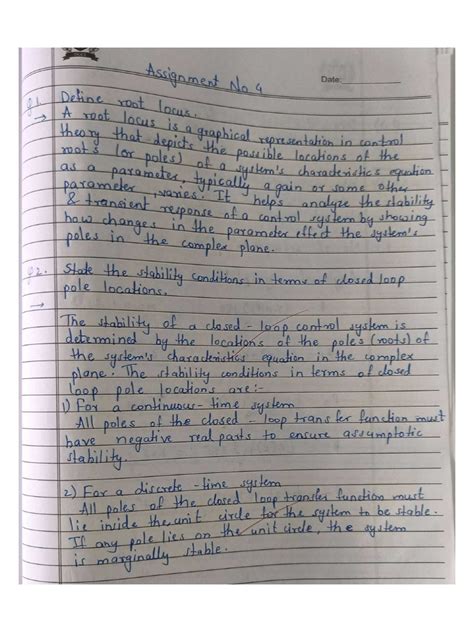 Assignment No 4
Date:
Q1. Define root locus.
→ A root locus is a graphical representation in control
theory that depicts the possible locations of the
roots (or poles) of a system's characteristics equation
as a parameter, typically a gain or some other
parameter, varies. It helps analyze the stability
& transient response of a control system by showing
how changes in the parameter effect the system's
poles in the complex plane.
Q2. State the stability conditions in terms of closed loop
pole locations.
→
The stability of a closed-loop control system is
determined by the locations of the poles (roots) of
the system's characteristics equation in the complex
plane. The stability conditions in terms of closed
loop pole locations are:-
1) For a continuous-time system
All poles of the closed-loop transfer function must
have negative real parts to ensure assymptotic
stability.
2) For a discrete-time system
All poles of the closed loop transfer function must
lie inside the unit circle for the system to be stable.
If any pole lies on the unit circle, the system
is marginally stable.